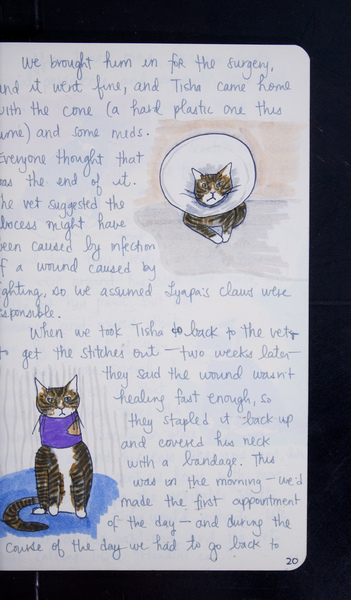 We brought him in for the surgery,
and it went fine, and Tisha came home
with the cone (a hard plastic one this
time) and some meds.
Everyone thought that
was the end of it.
The vet suggested the
abscess might have
been caused by infection
of a wound caused by
fighting, so we assumed Lyapa's claws were
responsible.
When we took Tisha to back to the vets
to get the stitches out — two weeks later —
they said the wound wasn't
healing fast enough, so
they stapled it back up
and covered his neck
with a bandage. This
was in the morning — we'd
made the first appointment
of the day — and during the
course of the day we had to go back to
20